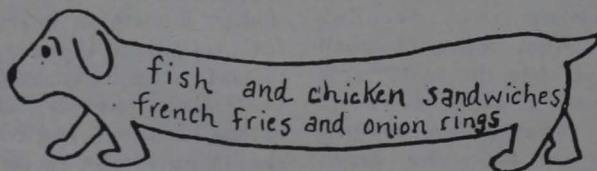 fish and chicken sandwiches
french fries and onion rings